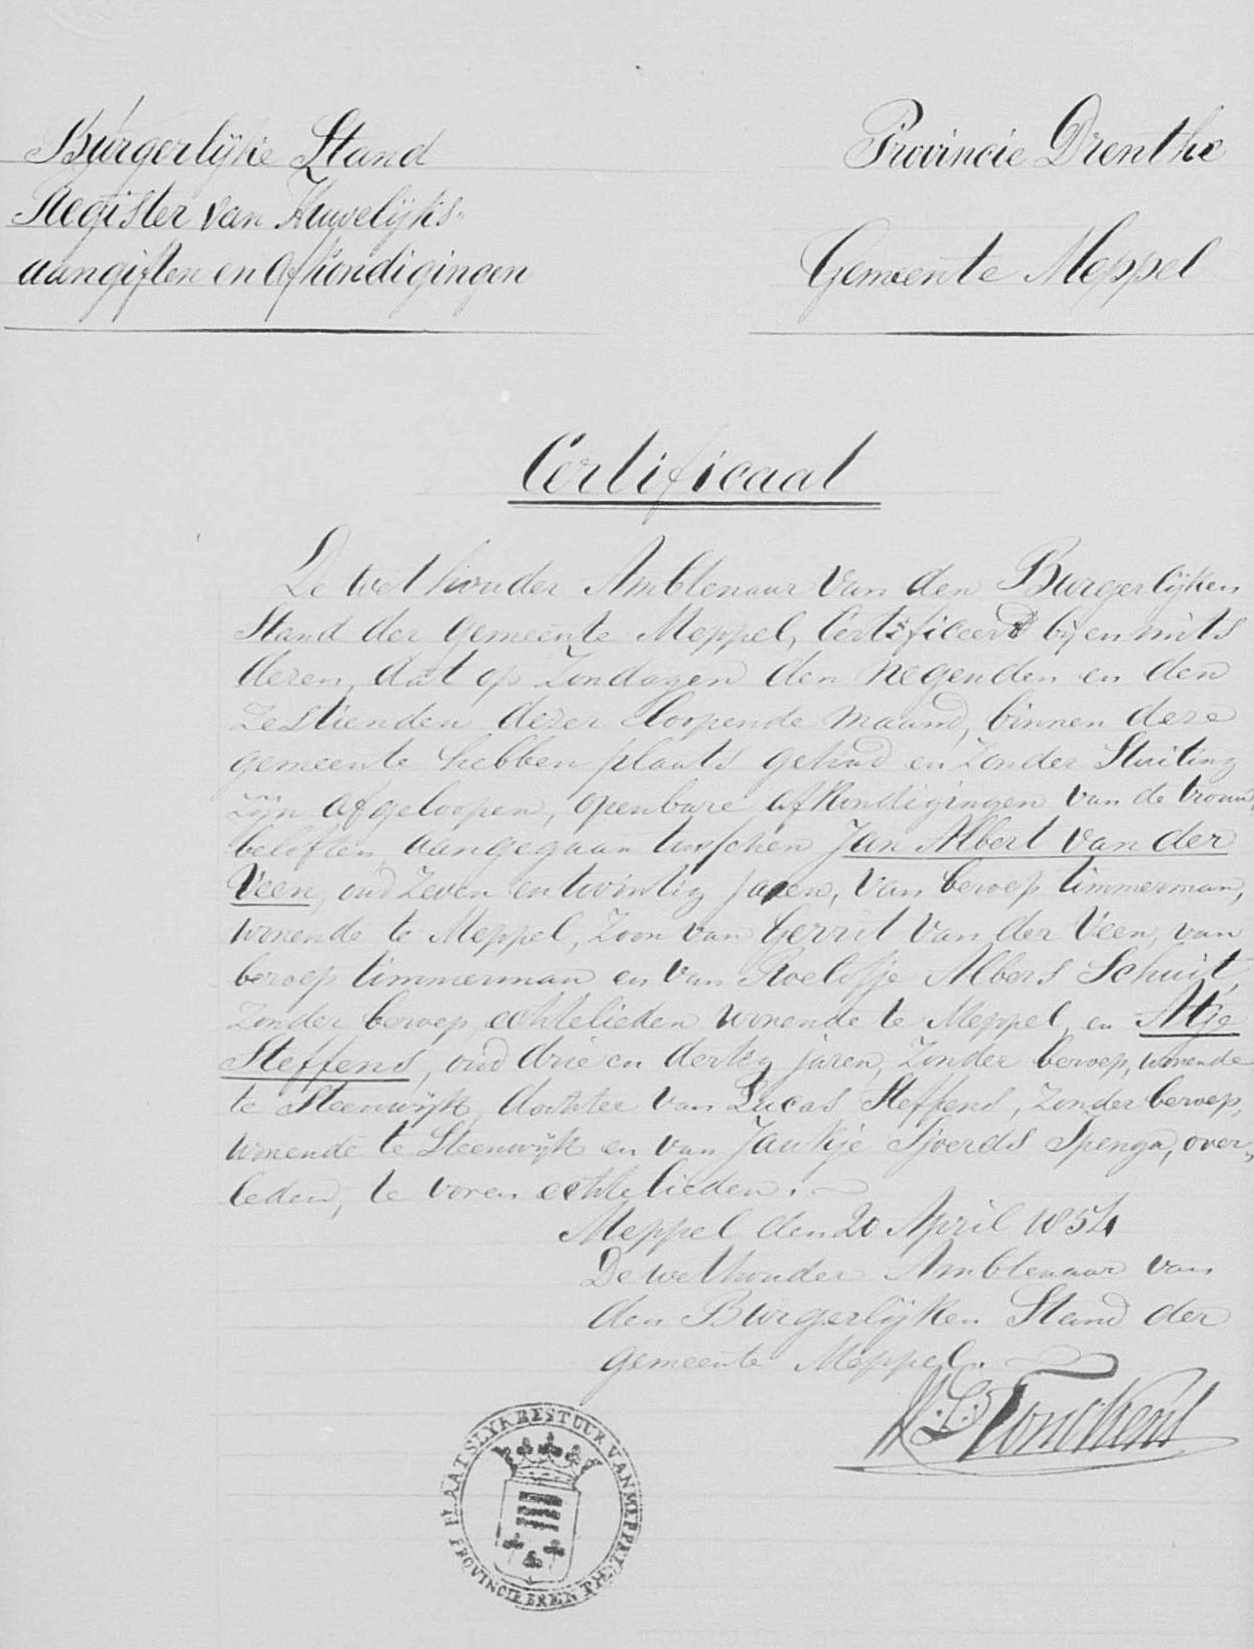 Burgerlijke Stand
Register van Huwelijks-
aangiften en afkondigingen
Provincie Drenthe
Gemeente Meppel
Certificaat
De wethouder Ambtenaar van den Burgerlijken
Stand der gemeente Meppel, Certificeerd bij en mits
dezen, dat op Zondagen den negenden en den
zestienden dezer loopende maand, binnen deze
gemeente hebben plaats gehad en zonder stuiting
zijn afgeloopen, openbare afkondigingen van de trouw
beloften, aangegaan tusschen Jan Albert van der
Veen, oud zeven en twintig jaren, van beroep timmerman,
wonende te Meppel, Zoon van Gerrit van der Veen, van
beroep timmerman en van Roelofje Albers Schuit,
zonder beroep, echtelieden wonende te Meppel, en Altje
Steffens, oud drie en dertig jaren, zonder beroep, wonende
te Steenwijk, dochter van Lucas Steffens, zonder beroep,
wonende te Steenwijk en van Jantje Sjoerds Spenga, over„
leden, te voren echtelieden.
Meppel den 20 April 1854
De wethouder Ambtenaar van
den Burgerlijken Stand der
gemeente Meppel.
L: Tonckens
PLAATSLYK BESTUUR VAN MEPPEL
PROVINCIE DRENTHE